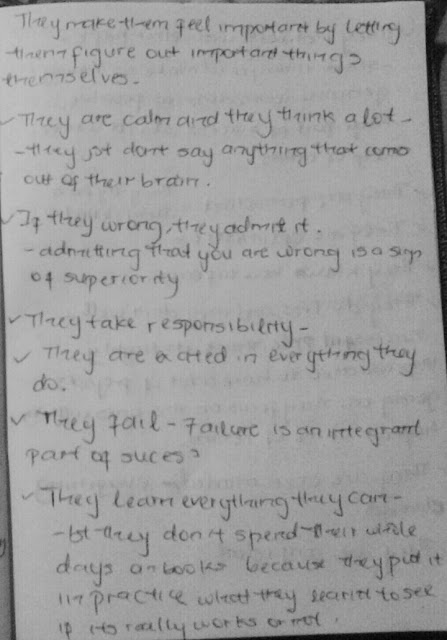 They make them feel important by letting
them figure out important things
themselves.
✓ They are calm and they think a lot -
- they jst dont say anything that coms
out of their brain.
✓ If they wrong, they admit it.
- admitting that you are wrong is a sign
of superiority
✓ They take responsibility -
✓ They are exited in everything they
do.
✓ They fail - Failure is an integrant
part of sucess
✓ They learn everything they can -
- bt they don't spend their while
days on books because they put it
in practice what they learnt to see
if its really works or not.